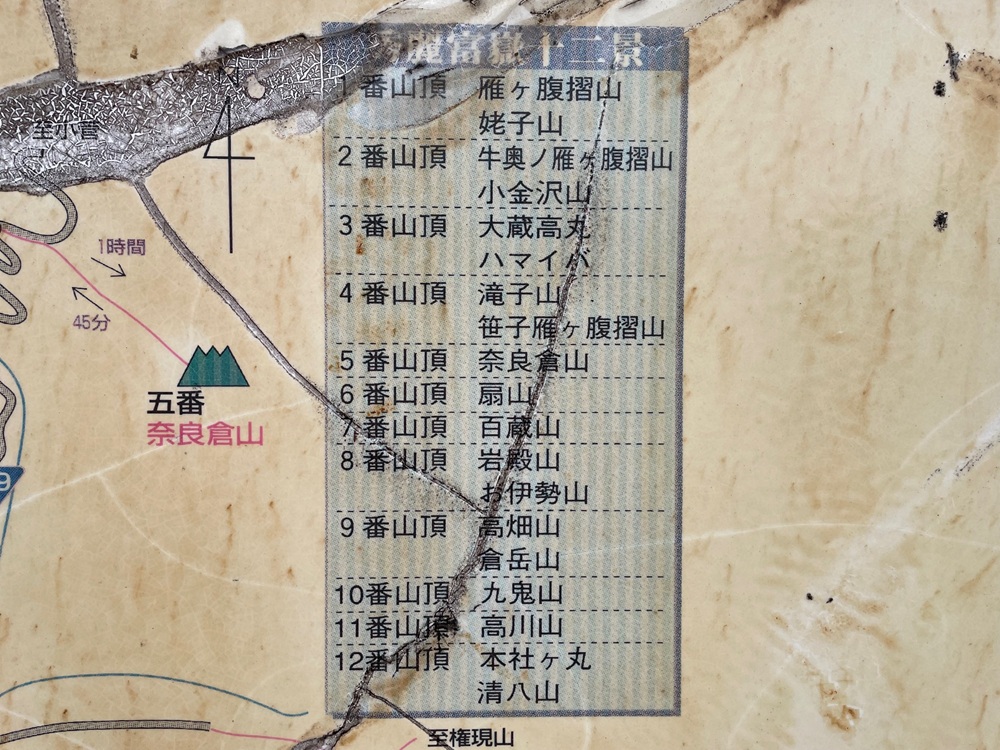 麗富嶽十二景
1番山頂 雁ヶ腹摺山
姥子山
2番山頂 牛奥ノ雁ヶ腹摺山
小金沢山
3番山頂 大蔵高丸
ハマイバ
4番山頂 滝子山
笹子雁ヶ腹摺山
5番山頂 奈良倉山
6番山頂 扇山
7番山頂 百蔵山
8番山頂 岩殿山
お伊勢山
9番山頂 高畑山
倉岳山
10番山頂 九鬼山
11番山頂 高川山
12番山頂 本社ヶ丸
清八山
至小菅
1時間
45分
五番
奈良倉山
9
至権現山